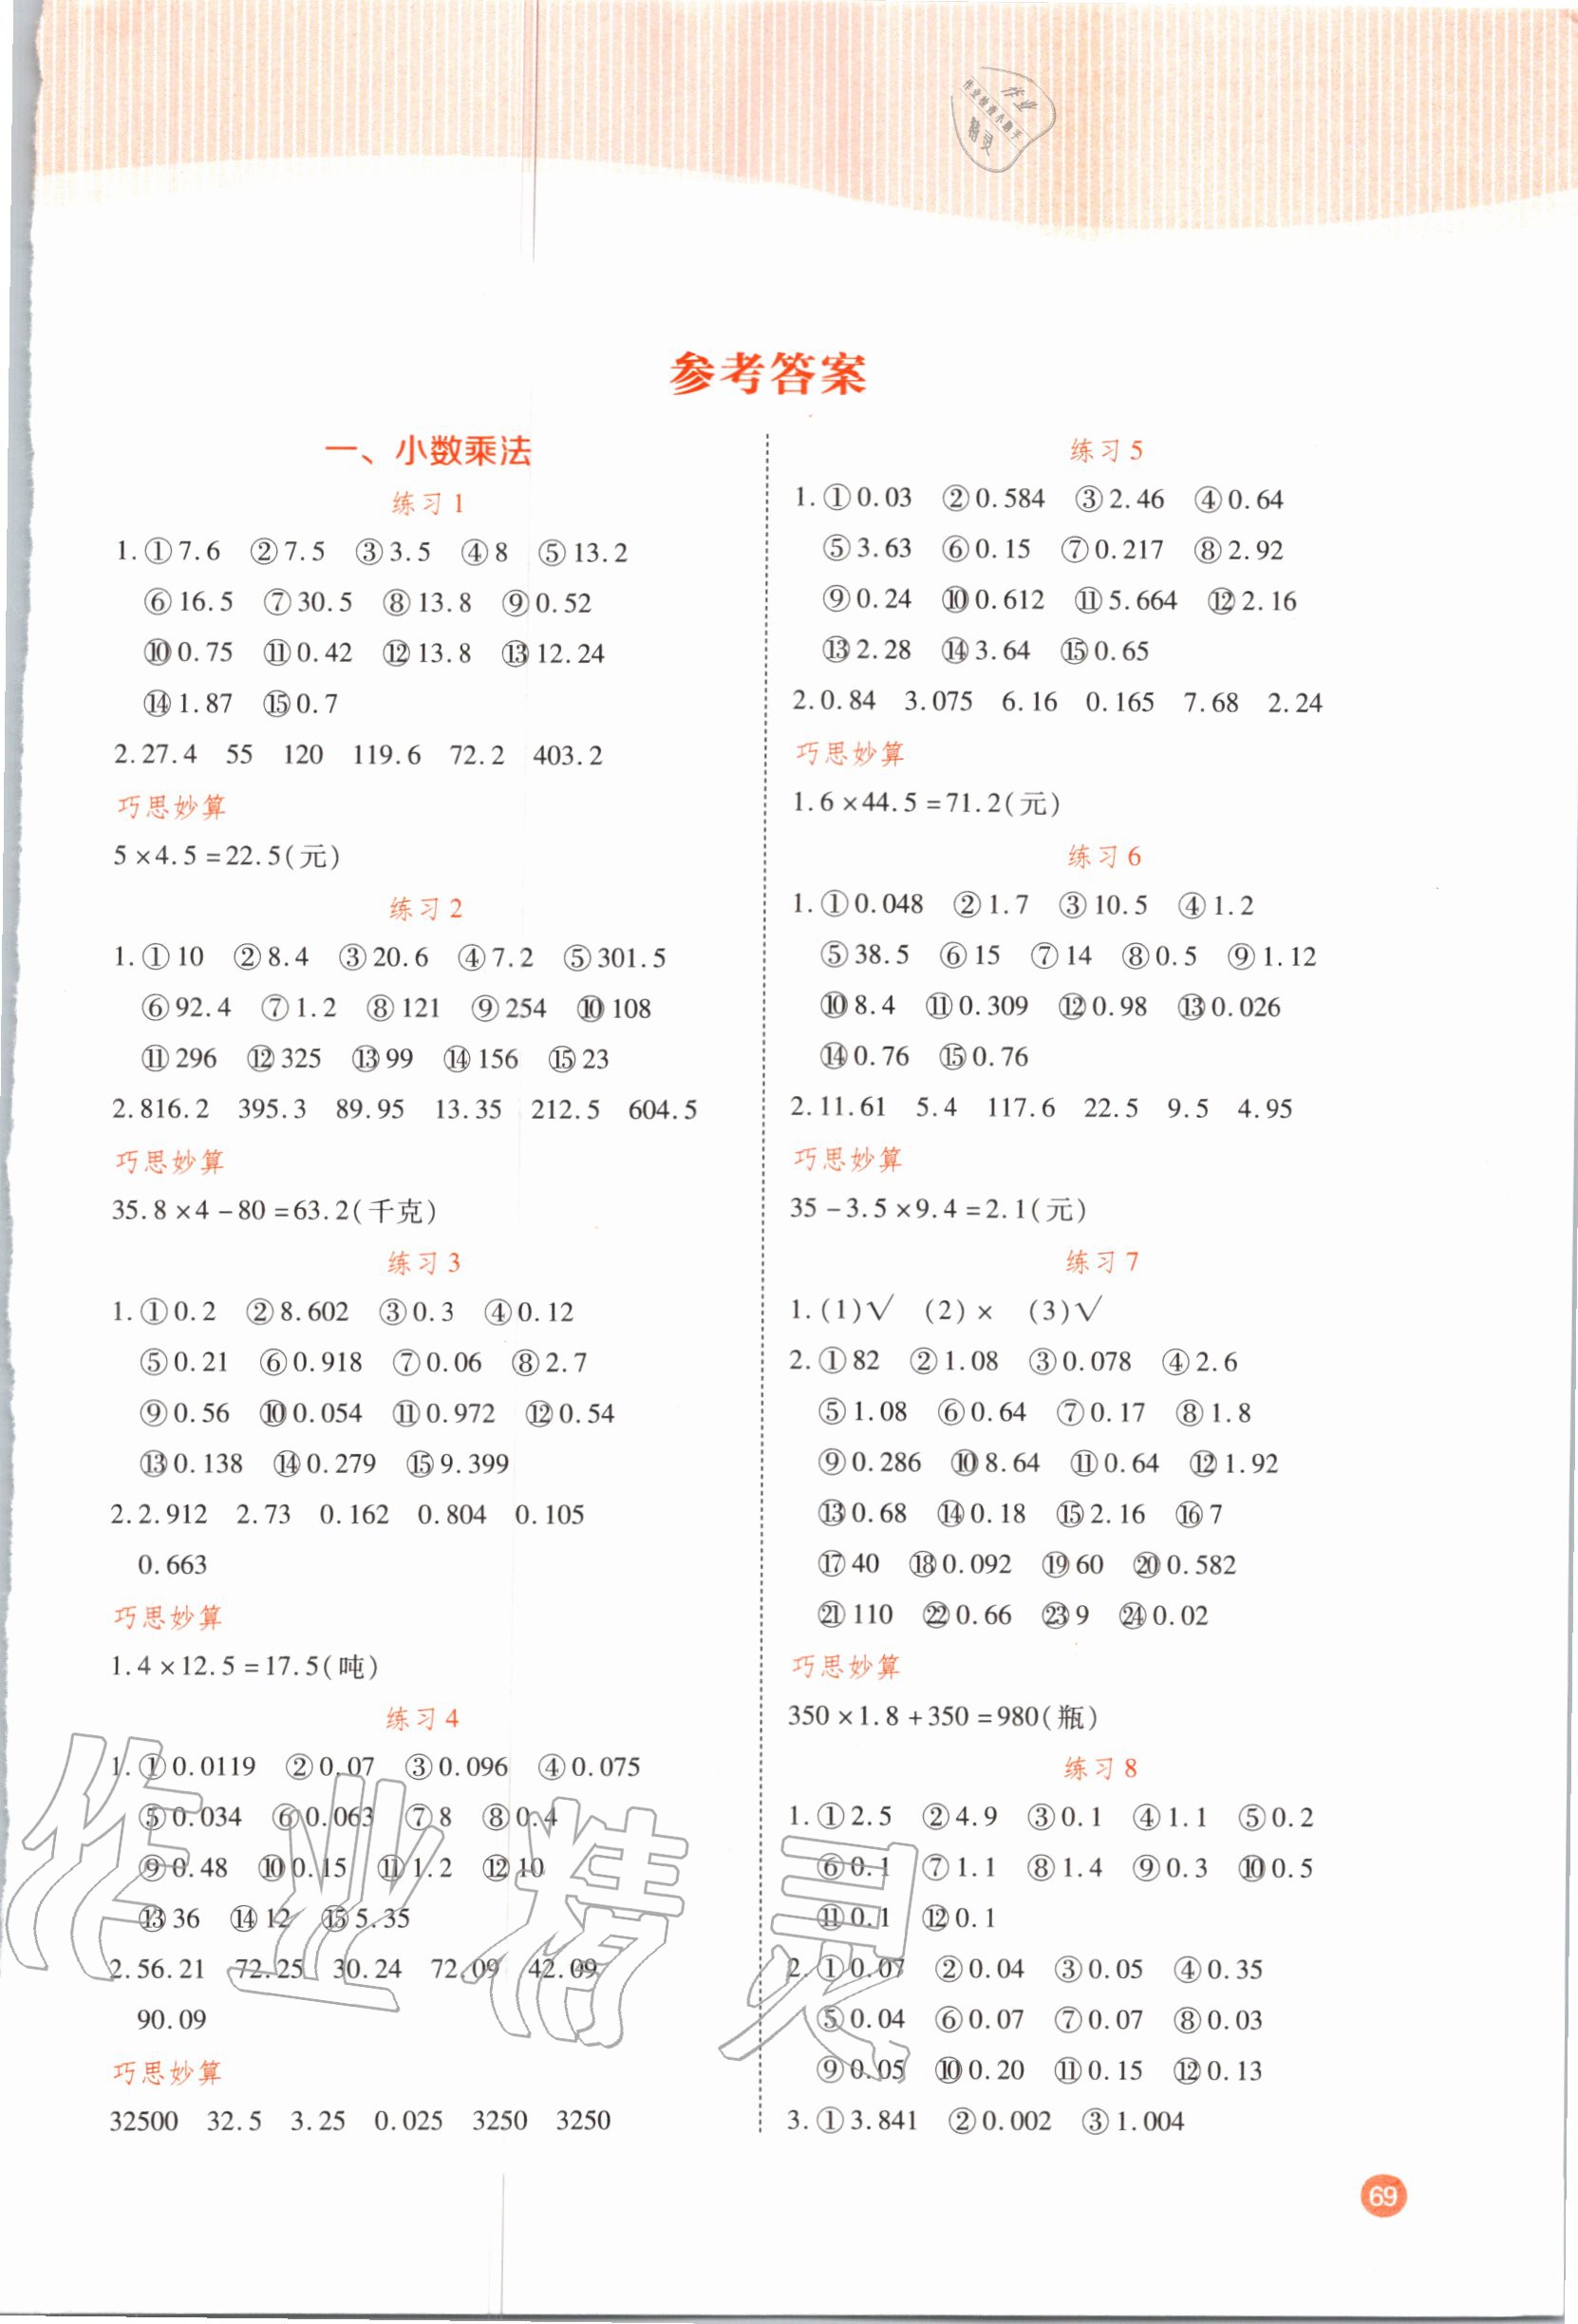 作业
作业检查小助手
精灵
参考答案
一、小数乘法
练习1
1.①7.6 ②7.5 ③3.5 ④8 ⑤13.2
⑥16.5 ⑦30.5 ⑧13.8 ⑨0.52
⑩0.75 ⑪0.42 ⑫13.8 ⑬12.24
⑭1.87 ⑮0.7
2.27.4 55 120 119.6 72.2 403.2
巧思妙算
5×4.5=22.5(元)
练习2
1.①10 ②8.4 ③20.6 ④7.2 ⑤301.5
⑥92.4 ⑦1.2 ⑧121 ⑨254 ⑩108
⑪296 ⑫325 ⑬99 ⑭156 ⑮23
2.816.2 395.3 89.95 13.35 212.5 604.5
巧思妙算
35.8×4-80=63.2(千克)
练习3
1.①0.2 ②8.602 ③0.3 ④0.12
⑤0.21 ⑥0.918 ⑦0.06 ⑧2.7
⑨0.56 ⑩0.054 ⑪0.972 ⑫0.54
⑬0.138 ⑭0.279 ⑮9.399
2.2.912 2.73 0.162 0.804 0.105
0.663
巧思妙算
1.4×12.5=17.5(吨)
练习4
1.①0.0119 ②0.07 ③0.096 ④0.075
⑤0.034 ⑥0.063 ⑦8 ⑧0.4
⑨0.48 ⑩0.15 ⑪1.2 ⑫10
⑬36 ⑭12 ⑮5.35
2.56.21 72.25 30.24 72.09 42.09
90.09
巧思妙算
32500 32.5 3.25 0.025 3250 3250
练习5
1.①0.03 ②0.584 ③2.46 ④0.64
⑤3.63 ⑥0.15 ⑦0.217 ⑧2.92
⑨0.24 ⑩0.612 ⑪5.664 ⑫2.16
⑬2.28 ⑭3.64 ⑮0.65
2.0.84 3.075 6.16 0.165 7.68 2.24
巧思妙算
1.6×44.5=71.2(元)
练习6
1.①0.048 ②1.7 ③10.5 ④1.2
⑤38.5 ⑥15 ⑦14 ⑧0.5 ⑨1.12
⑩8.4 ⑪0.309 ⑫0.98 ⑬0.026
⑭0.76 ⑮0.76
2.11.61 5.4 117.6 22.5 9.5 4.95
巧思妙算
35-3.5×9.4=2.1(元)
练习7
1.(1)√ (2)× (3)√
2.①82 ②1.08 ③0.078 ④2.6
⑤1.08 ⑥0.64 ⑦0.17 ⑧1.8
⑨0.286 ⑩8.64 ⑪0.64 ⑫1.92
⑬0.68 ⑭0.18 ⑮2.16 ⑯7
⑰40 ⑱0.092 ⑲60 ⑳0.582
㉑110 ㉒0.66 ㉓9 ㉔0.02
巧思妙算
350×1.8+350=980(瓶)
练习8
1.①2.5 ②4.9 ③0.1 ④1.1 ⑤0.2
⑥0.1 ⑦1.1 ⑧1.4 ⑨0.3 ⑩0.5
⑪0.1 ⑫0.1
2.①0.07 ②0.04 ③0.05 ④0.35
⑤0.04 ⑥0.07 ⑦0.07 ⑧0.03
⑨0.05 ⑩0.20 ⑪0.15 ⑫0.13
3.①3.841 ②0.002 ③1.004
作业精灵
69